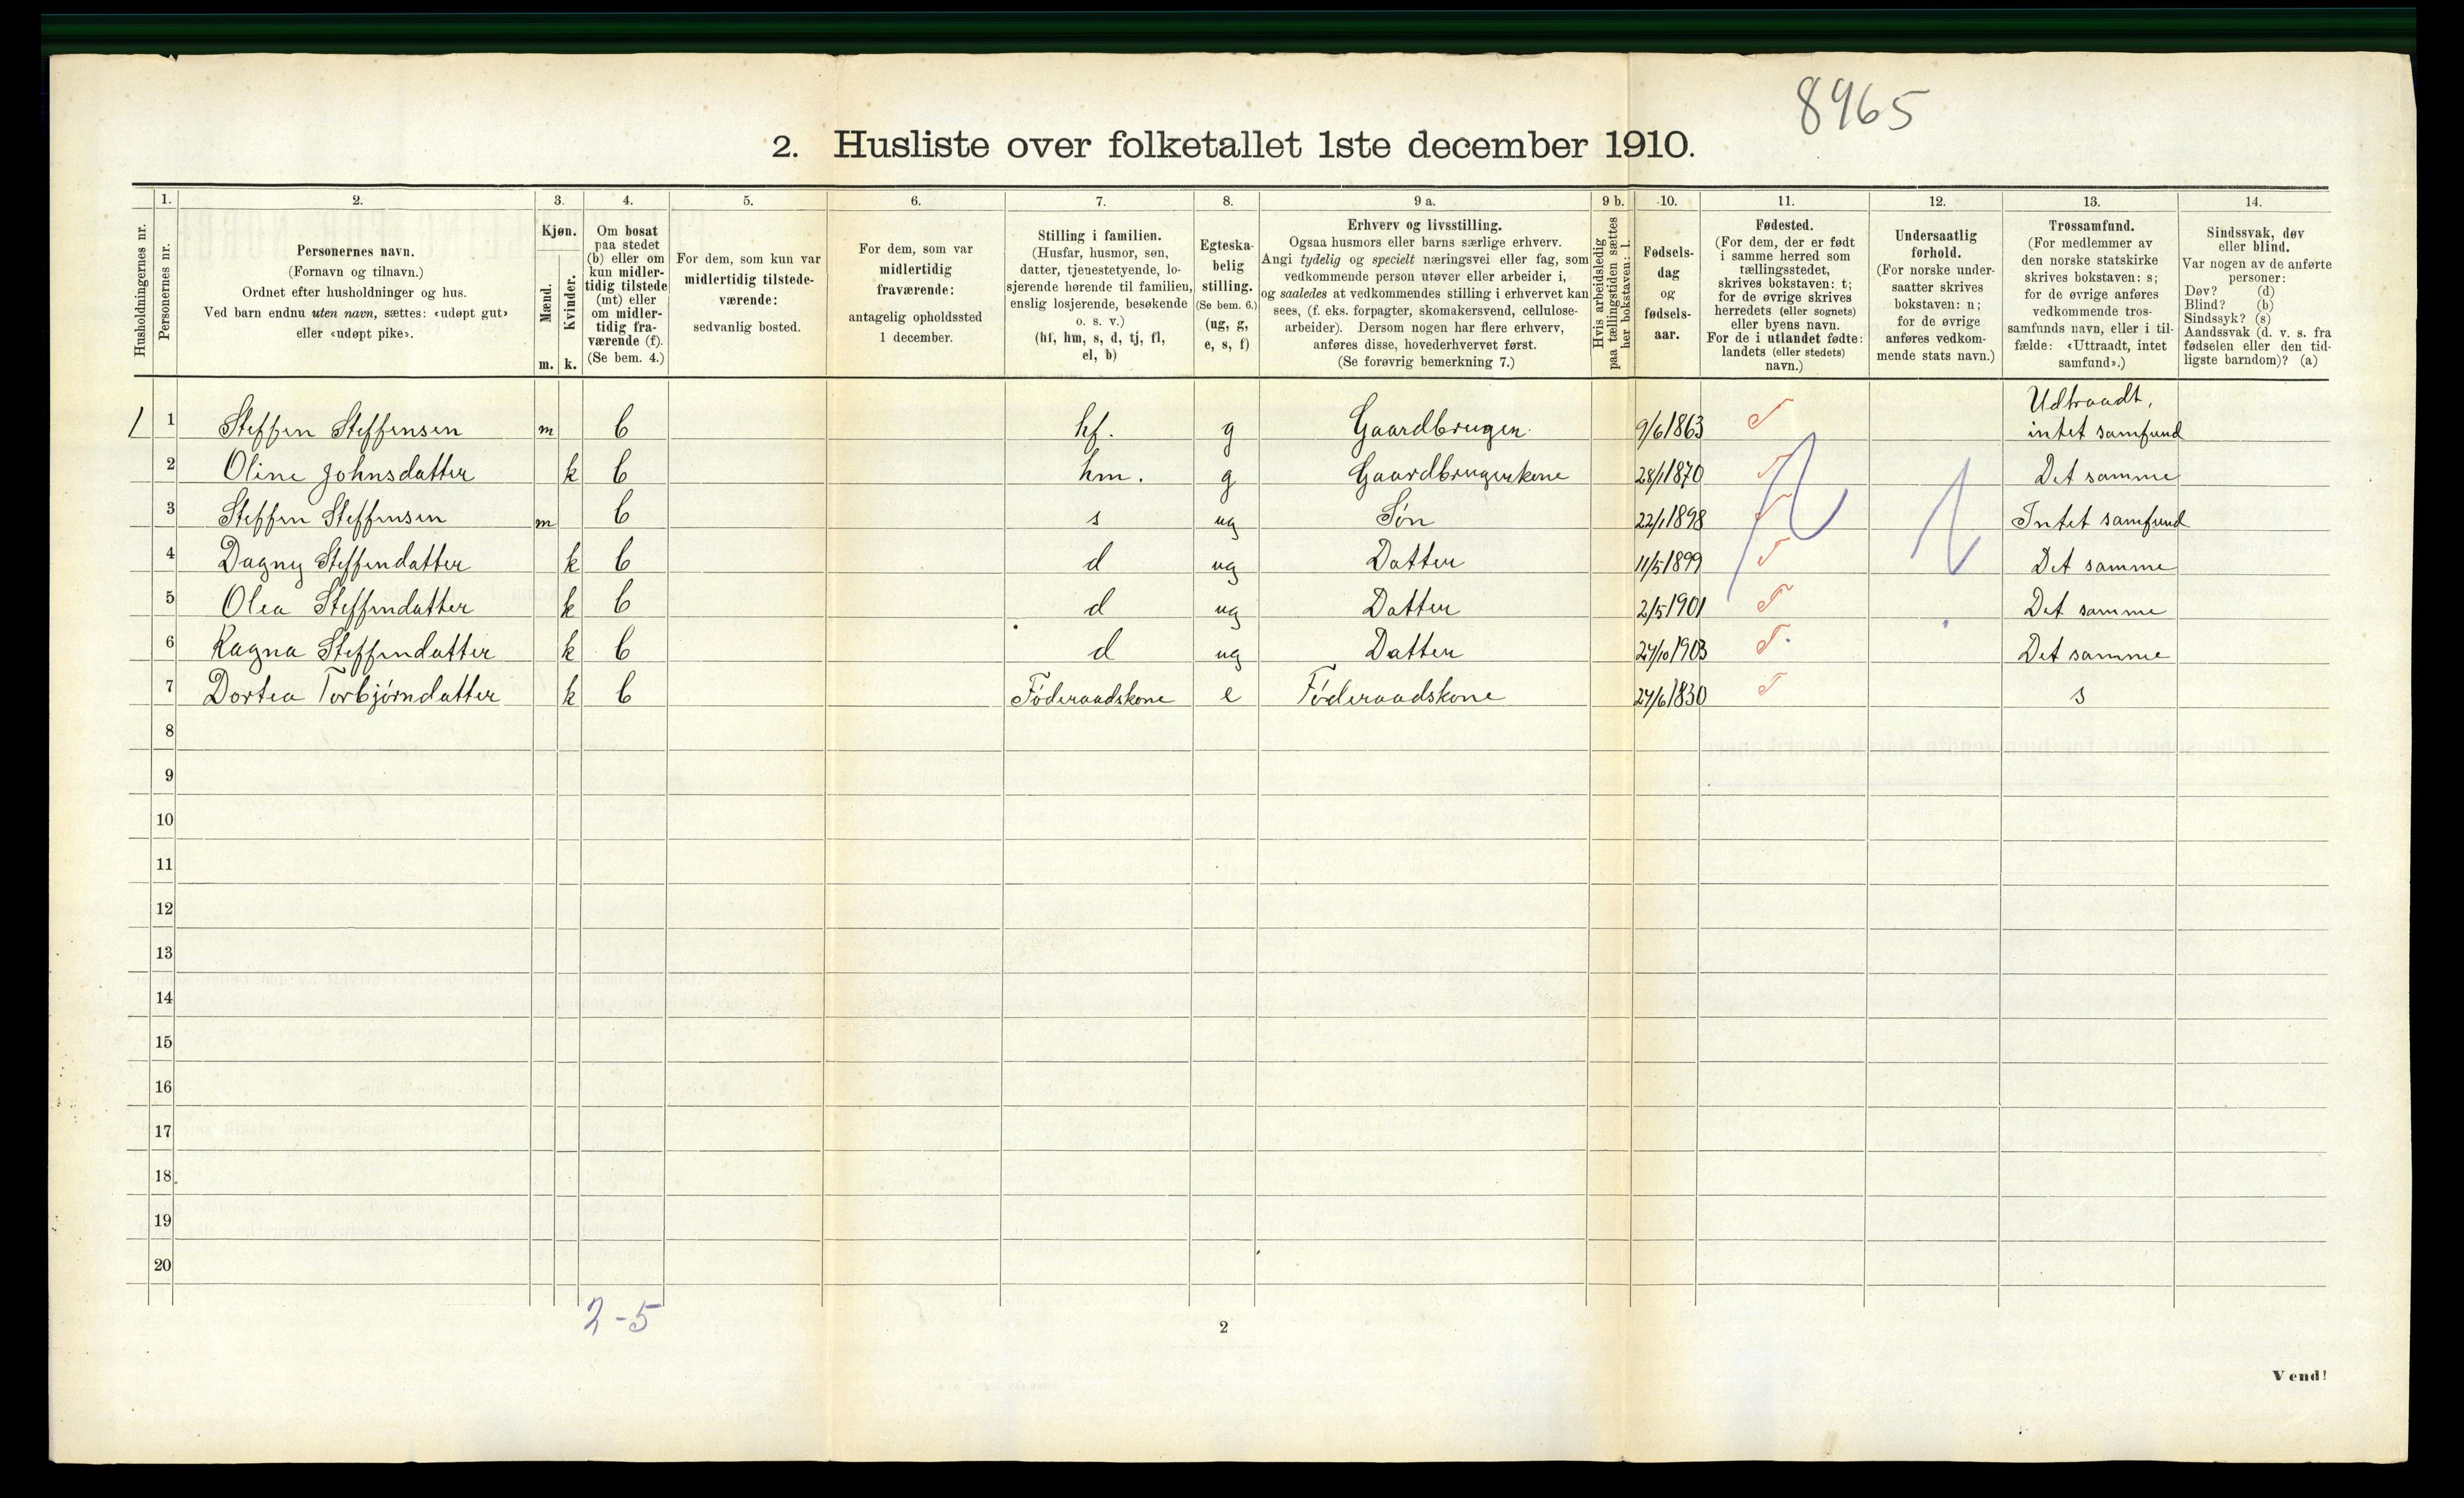 8965
2. Husliste over folketallet 1ste december 1910.
Husholdningernes nr.
1.
Personernes nr.
2.
Personernes navn.
(Fornavn og tilnavn.)
Ordnet efter husholdninger og hus.
Ved barn endnu uten navn, sættes: «udøpt gut»
eller «udøpt pike».
3.
Kjøn.
Mænd.
Kvinder.
m. k.
4.
Om bosat
paa stedet
(b) eller om
kun midler-
tidig tilstede
(mt) eller
om midler-
tidig fra-
værende (f).
(Se bem. 4.)
5.
For dem, som kun var
midlertidig tilstede-
værende:
sedvanlig bosted.
6.
For dem, som var
midlertidig
fraværende:
antagelig opholdssted
1 december.
7.
Stilling i familien.
(Husfar, husmor, søn,
datter, tjenestetyende, lo-
sjerende hørende til familien,
enslig losjerende, besøkende
o. s. v.)
(hf, hm, s, d, tj, fl,
el, b)
8.
Egteska-
belig
stilling.
(Se bem. 6.)
(ug, g,
e, s, f)
9 a.
Erhverv og livsstilling.
Ogsaa husmors eller barns særlige erhverv.
Angi tydelig og specielt næringsvei eller fag, som
vedkommende person utøver eller arbeider i,
og saaledes at vedkommendes stilling i erhvervet kan
sees, (f. eks. forpagter, skomakersvend, cellulose-
arbeider). Dersom nogen har flere erhverv,
anføres disse, hovederhvervet først.
(Se forøvrig bemerkning 7.)
9 b.
Hvis arbeidsledig
paa tællingstiden sættes
her bokstaven: l.
10.
Fødsels-
dag
og
fødsels-
aar.
11.
Fødested.
(For dem, der er født
i samme herred som
tællingsstedet,
skrives bokstaven: t;
for de øvrige skrives
herredets (eller sognets)
eller byens navn.
For de i utlandet fødte:
landets (eller stedets)
navn.)
12.
Undersaatlig
forhold.
(For norske under-
saatter skrives
bokstaven: n;
for de øvrige
anføres vedkom-
mende stats navn.)
13.
Trossamfund.
(For medlemmer av
den norske statskirke
skrives bokstaven: s;
for de øvrige anføres
vedkommende tros-
samfunds navn, eller i til-
fælde: «Uttraadt, intet
samfund».)
14.
Sindssvak, døv
eller blind.
Var nogen av de anførte
personer:
Døv? (d)
Blind? (b)
Sindssyk? (s)
Aandssvak (d. v. s. fra
fødselen eller den tid-
ligste barndom)? (a)
Udtraadt,
1 1 Steffen Steffensen m b hf. g Gaardbruger 9/6 1863 T intet samfund
2 Oline Johnsdatter k b hm. g Gaardbrugerkone 28/1 1870 T Det samme
3 Steffen Steffensen m b s ug Søn 22/1 1898 T Intet samfund
4 Dagny Steffendatter k b d ug Datter 11/5 1899 T Det samme
5 Olea Steffendatter k b d ug Datter 2/5 1901 T Det samme
6 Ragna Steffendatter k b d ug Datter 27/10 1903 T Det samme
7 Dortea Torbjørndatter k b Føderaadskone e Føderaadskone 27/6 1830 T s
n n
8
9
10
11
12
13
14
15
16
17
18
19
20
2-5
2
Vend!